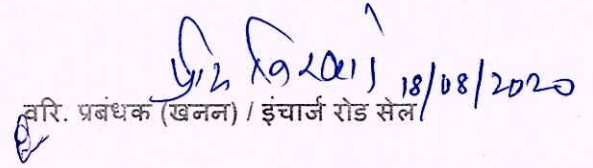 18/08/2020
वरि. प्रबंधक (खनन) / इंचार्ज रोड सेल